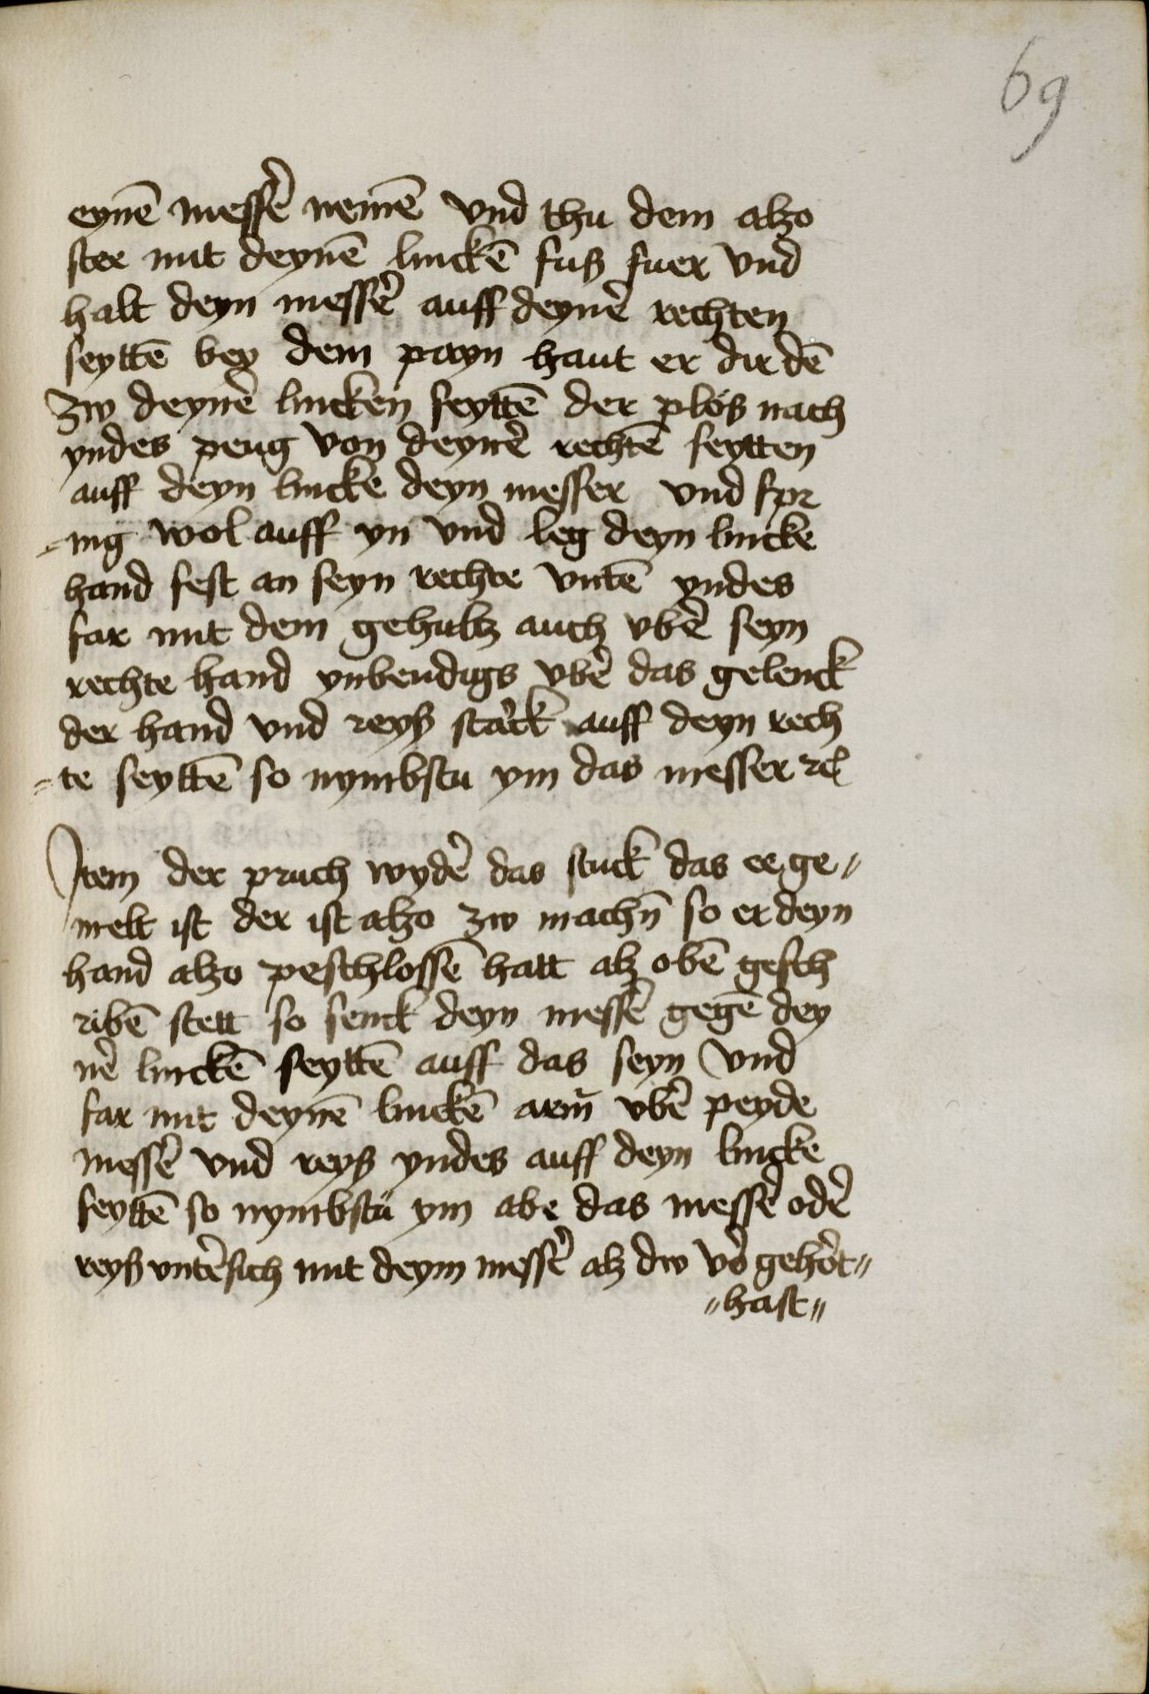 69
eynē messē nemē vnd thu dem alzo
stee mit deynē linckē fuß fuer vnd
halt deyn messē auff deynē rechten
seyttē bey dem payn haut er dir dē
zw deynē lincken seyttē der plöß nach
yndes peug von deynē rechtē seytten
auff deyn lincke deyn messer vnd spr
-ing wol auff yn vnd leg deyn lincke
hand fest an seyn rechte vntē yndes
far mit dem gehultz auch vbē seyn
rechte hand ynbendigs vbē das gelenck
der hand vnd reyß starck auff deyn rech
=te seyttē so nymbstu ym das messer ꝛc
Item der pruch wydē das stuck das ee ge〃
melt ist der ist alzo zw machn̄ so er deyn
hand alzo peschlossē hatt alz obē gesch
ribē stett so senck deyn messē gegē dey
nē linckē seyttē auff das seyn vnd
far mit deynē linckē arm̄ vbē peyde
messē vnd reyß yndes auff deyn lincke
seyttē so nymbstu ym abe das messē odē
reyß vntēsich mit deym messē alz dw vō gehōt〃
〃hast〃